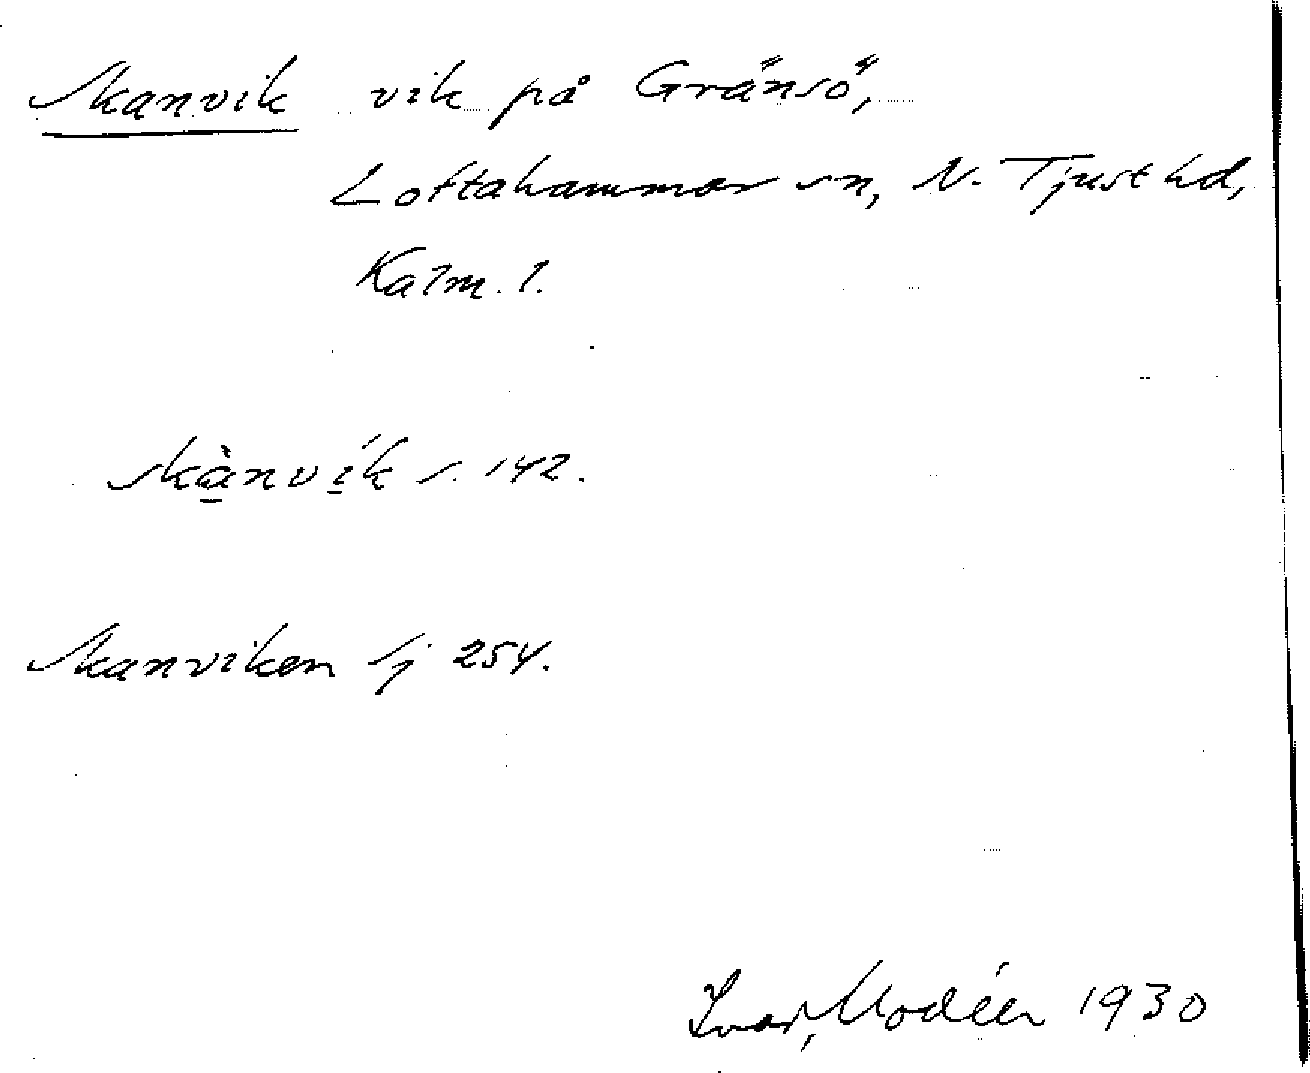 Skanvik vik på Gränsö,
Loftahammar sn, N. Tjust hd,
Kalm. l.
skà̱nví̱k s. 142.
Skanviken Sj 254.
Ivar Modéer 1930